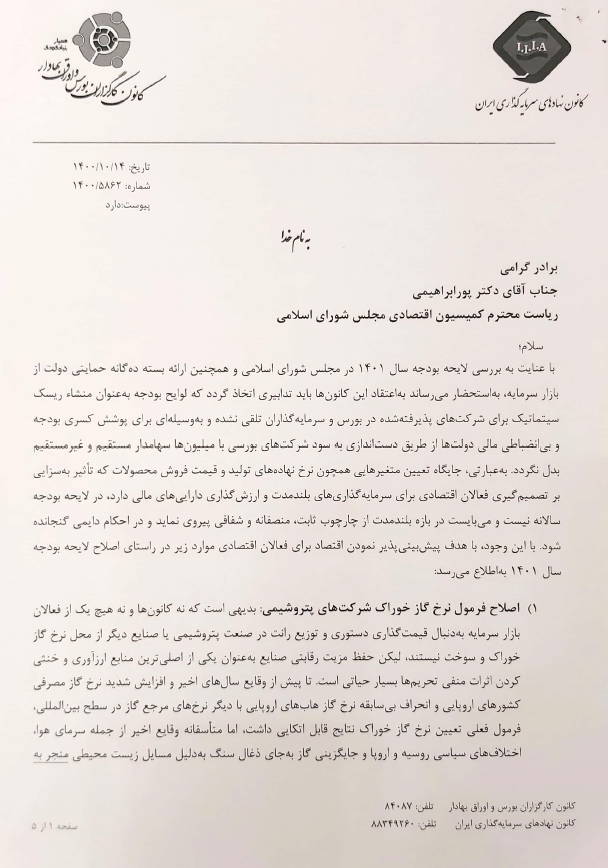 همیار
بنیاد کودک
کانون کارگزاران بورس و اوراق بهادار
I.I.I.A
کانون نهادهای سرمایه گذاری ایران
تاریخ: ۱۴۰۰/۱۰/۱۴
شماره: ۱۴۰۰/۵۸۶۲
پیوست:دارد
به نام خدا
برادر گرامی
جناب آقای دکتر پورابراهیمی
ریاست محترم کمیسیون اقتصادی مجلس شورای اسلامی
سلام؛
با عنایت به بررسی لایحه بودجه سال ۱۴۰۱ در مجلس شورای اسلامی و همچنین ارائه بسته ده‌گانه حمایتی دولت از
بازار سرمایه، به‌استحضار می‌رساند به‌اعتقاد این کانون‌ها باید تدابیری اتخاذ گردد که لوایح بودجه به‌عنوان منشاء ریسک
سیتماتیک برای شرکت‌های پذیرفته‌شده در بورس و سرمایه‌گذاران تلقی نشده و به‌وسیله‌ای برای پوشش کسری بودجه
و بی‌انضباطی مالی دولت‌ها از طریق دست‌اندازی به سود شرکت‌های بورسی با میلیون‌ها سهامدار مستقیم و غیرمستقیم
بدل نگردد. به‌عبارتی، جایگاه تعیین متغیرهایی همچون نرخ نهاده‌های تولید و قیمت فروش محصولات که تأثیر به‌سزایی
بر تصمیم‌گیری فعالان اقتصادی برای سرمایه‌گذاری‌های بلندمدت و ارزش‌گذاری دارایی‌های مالی دارد، در لایحه بودجه
سالانه نیست و می‌بایست در بازه بلندمدت از چارچوب ثابت، منصفانه و شفافی پیروی نماید و در احکام دایمی گنجانده
شود. با این وجود، با هدف پیش‌بینی‌پذیر نمودن اقتصاد برای فعالان اقتصادی موارد زیر در راستای اصلاح لایحه بودجه
سال ۱۴۰۱ به‌اطلاع می‌رسد:
۱) اصلاح فرمول نرخ گاز خوراک شرکت‌های پتروشیمی: بدیهی است که نه کانون‌ها و نه هیچ یک از فعالان
بازار سرمایه به‌دنبال قیمت‌گذاری دستوری و توزیع رانت در صنعت پتروشیمی یا صنایع دیگر از محل نرخ گاز
خوراک و سوخت نیستند، لیکن حفظ مزیت رقابتی صنایع به‌عنوان یکی از اصلی‌ترین منابع ارزآوری و خنثی
کردن اثرات منفی تحریم‌ها بسیار حیاتی است. تا پیش از وقایع سال‌های اخیر و افزایش شدید نرخ گاز مصرفی
کشورهای اروپایی و انحراف بی‌سابقه نرخ گاز هاب‌های اروپایی با دیگر نرخ‌های مرجع گاز در سطح بین‌المللی،
فرمول فعلی تعیین نرخ گاز خوراک نتایج قابل اتکایی داشت، اما متأسفانه وقایع اخیر از جمله سرمای هوا،
اختلاف‌های سیاسی روسیه و اروپا و جایگزینی گاز به‌جای ذغال سنگ به‌دلیل مسایل زیست محیطی منجر به
کانون کارگزاران بورس و اوراق بهادار تلفن: ۸۴۰۸۷
کانون نهادهای سرمایه‌گذاری ایران تلفن: ۸۸۳۴۹۲۶۰
صفحه ۱ از ۵